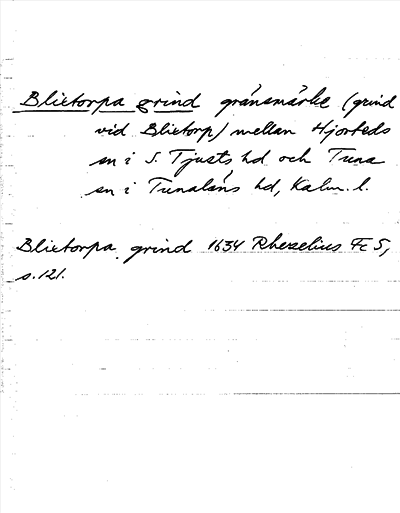 Blietorpa grind gränsmärke (grind
vid Blietorp) mellan Hjorteds
sn i S. Tjusts hd och Tuna
sn i Tunaläns hd, Kalm. l.
Blietorpa grind 1634 Rhezelius Fc 5,
s. 121.